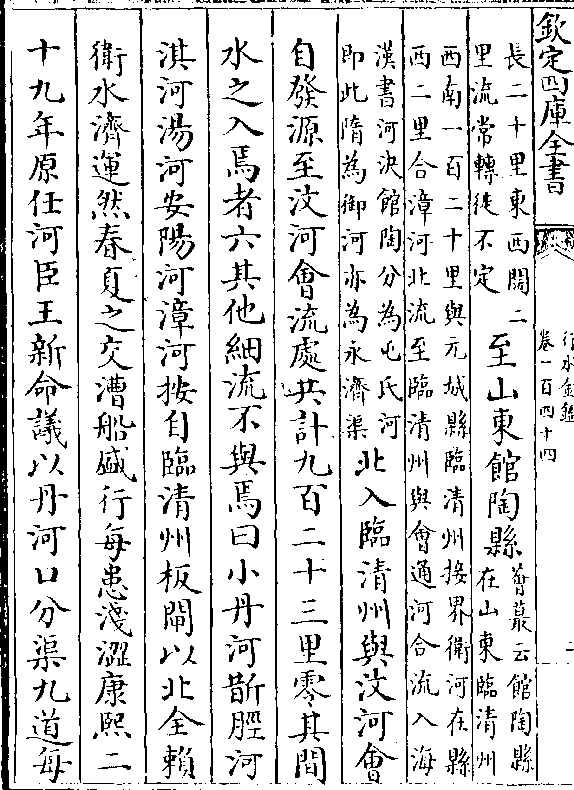 欽定四庫全書
行水金鑑
卷一百四十四
二
長二十里東西闊二
里流常轉徙不定
至山東館陶縣
薈蕞云館陶縣
在山東臨清州
西南一百二十里與元城縣臨清州接界衛河在縣
西二里合漳河北流至臨清州與會通河合流入海
漢書河決館陶分為屯氏河
即此隋為御河亦為永濟渠
北入臨清州與汶河會
自發源至汶河會流處共計九百二十三里零其間
水之入焉者六其他細流不與焉曰小丹河斮脛河
淇河湯河安陽河漳河按自臨清州板閘以北全賴
衛水濟運然春夏之交漕船盛行每患淺澀康熙二
十九年原任河臣王新命議以丹河口分渠九道每